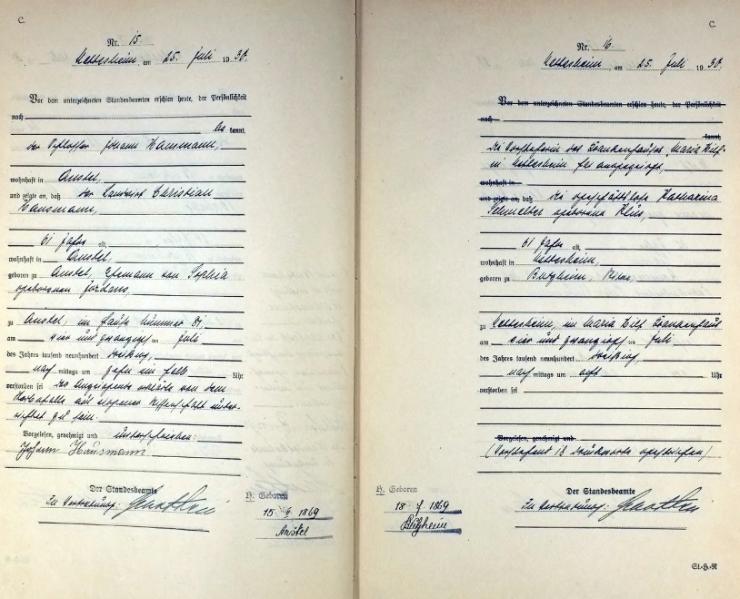 C.
Nr. 15
am 25. Juli 1930.
Vor dem unterzeichneten Standesbeamten erschien heute, der Persönlichkeit
nach
be kannt,
der Schlosser Johann Hausmann,
wohnhaft in Anstel,
und zeigte an, daß der Landwirt Christian
Hausmann,
61 Jahre alt,
wohnhaft in Anstel,
geboren zu Anstel, Ehemann von Sophia
geborenen
zu Anstel, im Hause Nummer 31,
am vier und zwanzigsten Juli
des Jahres tausend neunhundert dreißig
nach mittags um zehn ein halb Uhr
verstorben sei. Der Anzeigende erklärte von dem
Sterbefalle aus eigener Wissenschaft unter-
richtet zu sein.
Vorgelesen, genehmigt und unterschrieben:
Johann Hausmann
Der Standesbeamte
In Vertretung:
H. Geboren
15 1869
Anstel
C.
Nr. 16
am 25. Juli 1930.
Vor dem unterzeichneten Standesbeamten erschien heute, der Persönlichkeit
nach
kannt,
Die Vorsteherin des Krankenhauses Maria Hilf
in hat angezeigt,
wohnhaft in
und zeigte an, daß die geschäftslose Katharina
geborene
61 Jahre alt,
wohnhaft in
geboren zu
zu im Maria Hilf Krankenhaus
am vier und zwanzigsten Juli
des Jahres tausend neunhundert dreißig
nach mittags um acht Uhr
verstorben sei
Vorgelesen, genehmigt und
(Vorstehend 18 Druckworte gestrichen)
Der Standesbeamte
In Vertretung:
H. Geboren
18 1869
St.-H.-R